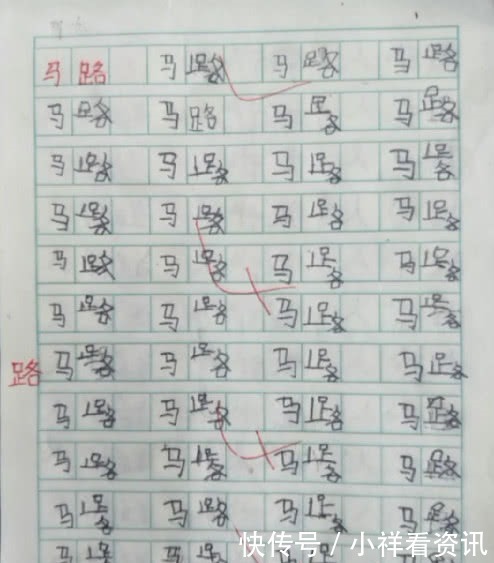 马路 马路 马路 马路
马路 马路 马路 马路
马路 马路 马路 马路
马路 马路 马路 马路
马路 马路 马路 马路
马路 马路 马路 马路
路 马路 马路 马路 马路
马路 马路 马路 马路
马路 马路 马路 马路
马路 马路 马路 马路
马路 马路 马路 马路
快传号/小祥看资讯